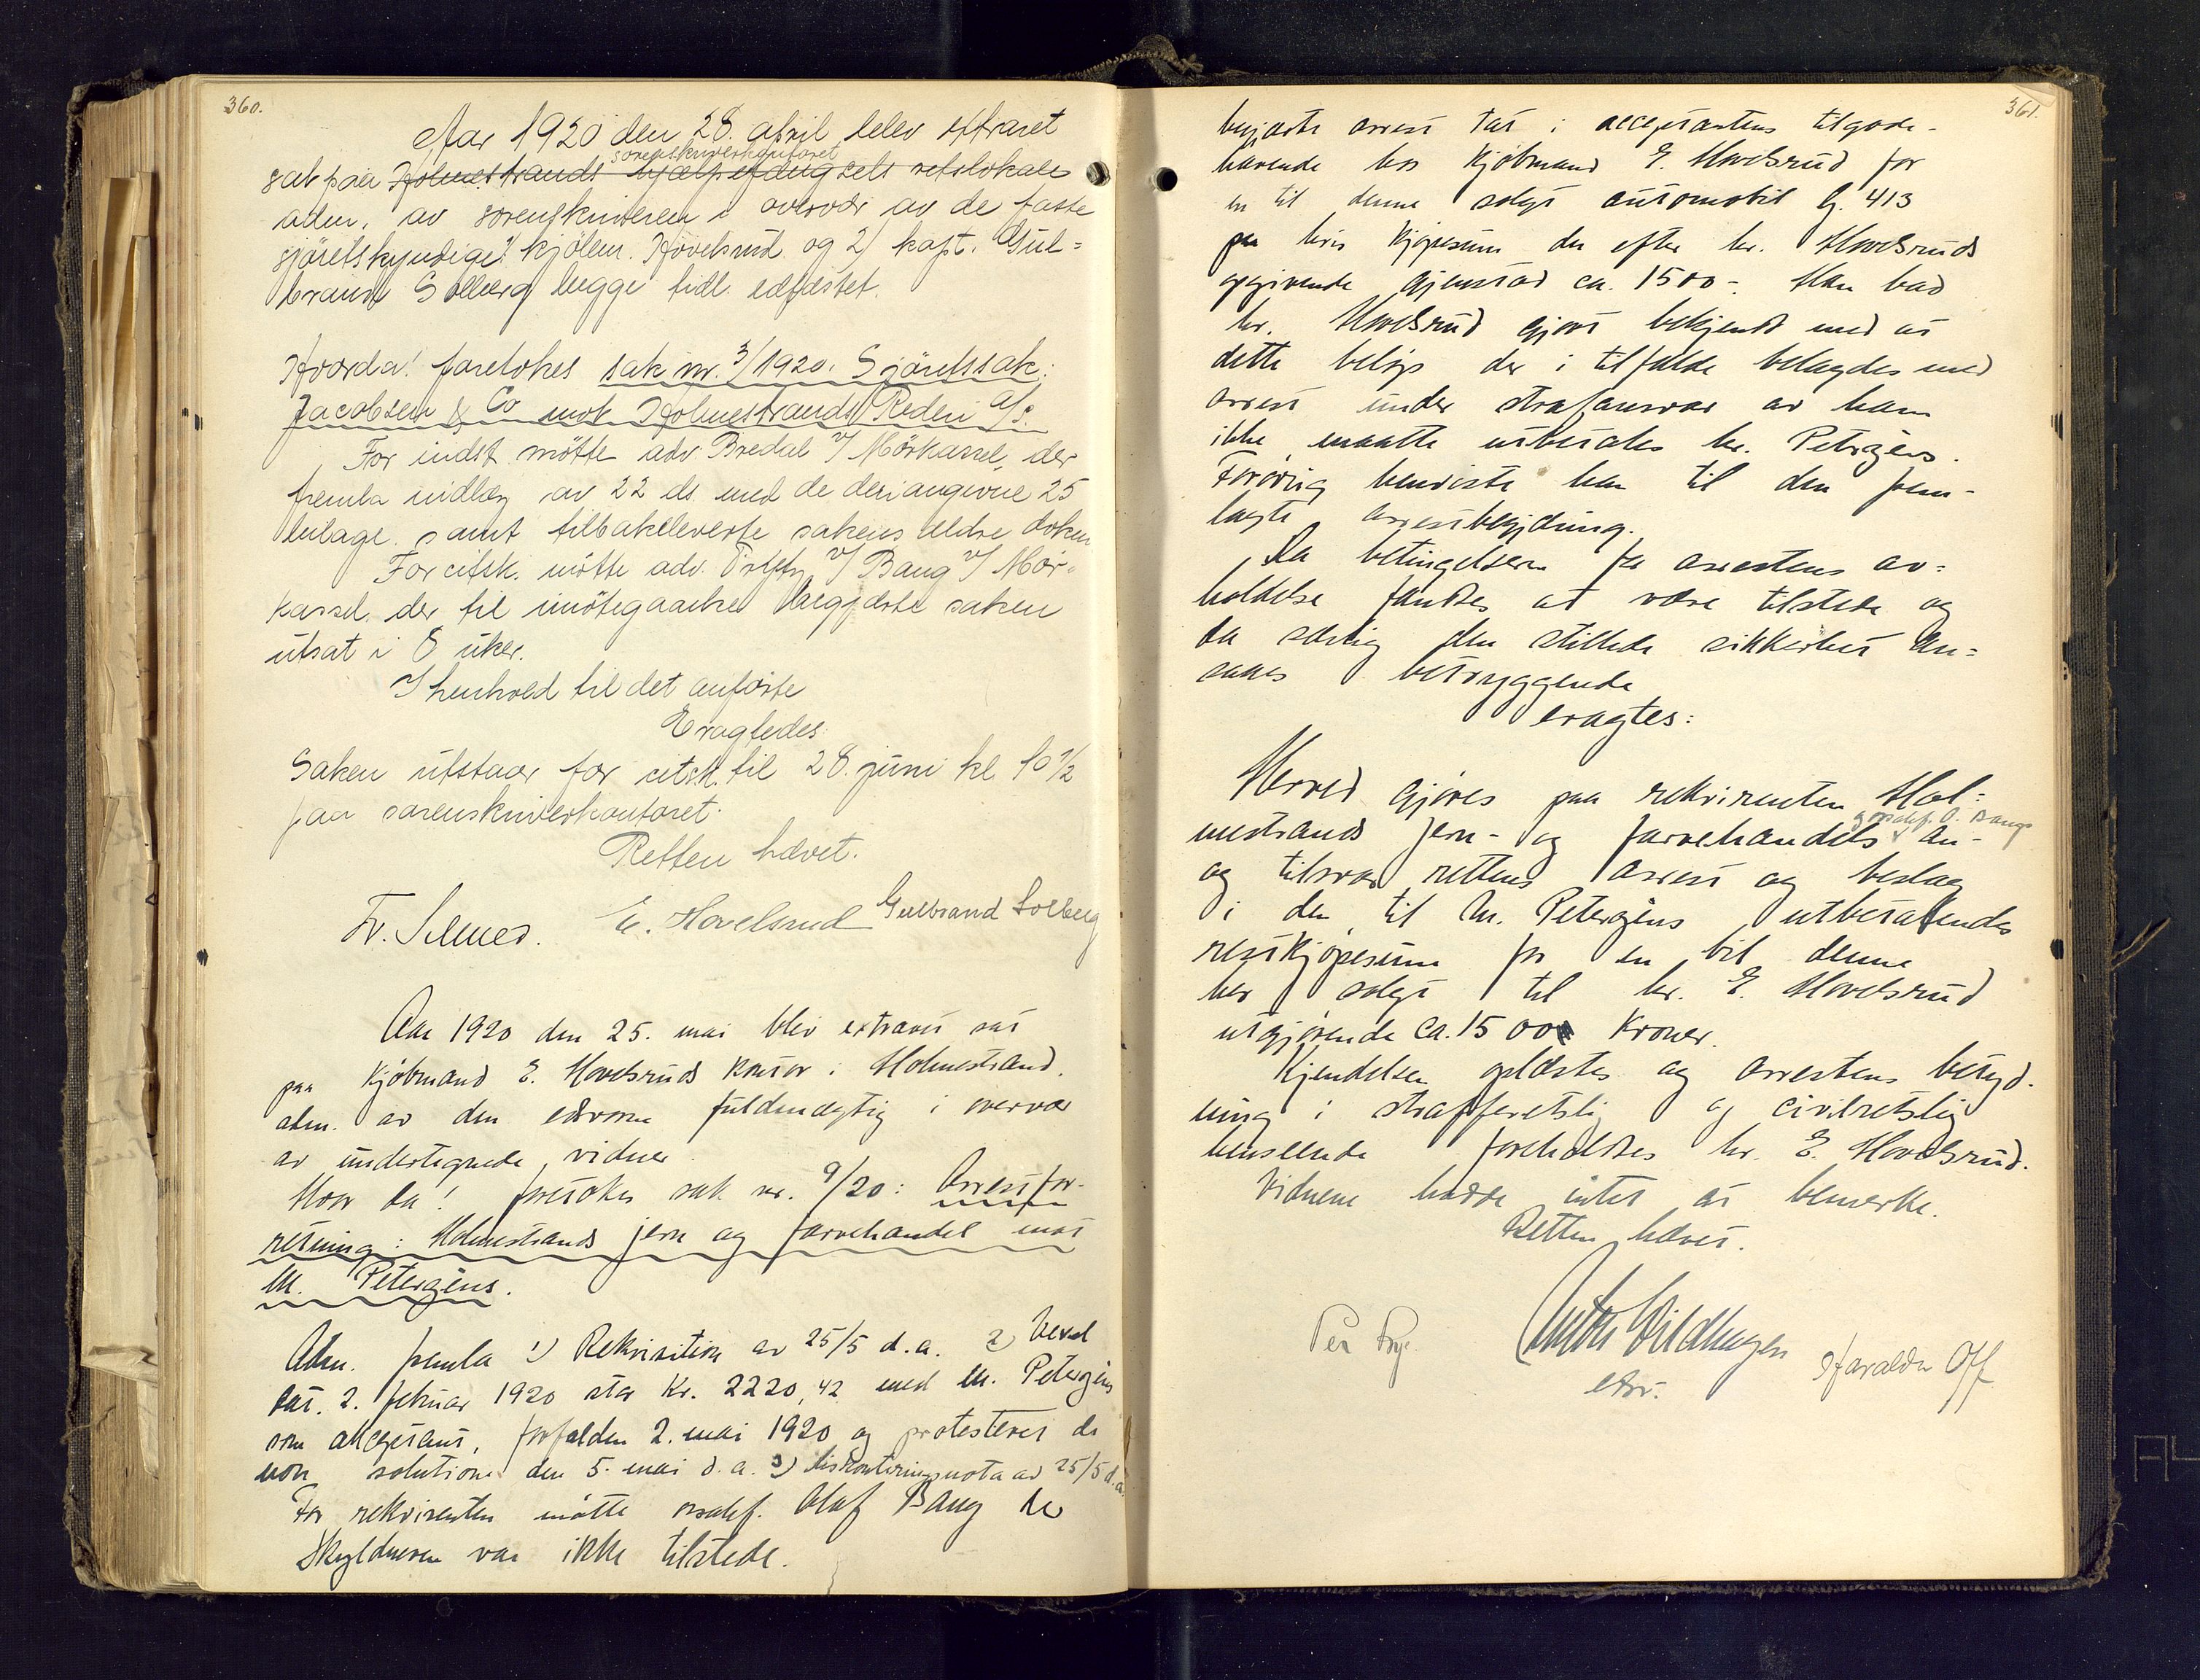 360.
Aar 1920 den 28. april blev extraret
sorenskriverkontoret
sat paa Holmestrands hjælpefængsels retslokale
adm. av sorenskriveren i overvær av de faste
sjöretskyndige 1) kjöbm. Hövelsrud og 2) kapt. Gul=
brand Solberg begge tidl. edfæstet.
Hvorda! foretokes sak nr. 3/1920. Sjöretssak:
Jacobsen & Co mot Holmestrands Rederi A/S.
For indst. mötte adv. Bredal v/ Mörkassel, der
fremla indlæg av 22 ds. med de deri angivne 25
bilage samt tilbakeleverte sakens ældre dokum
For citsk. mötte adv. v/ Bang v/ Mör=
kassel, der til imötegaaelse begjærte saken
utsat i 8 uker.
I henhold til det anförte
Eragtedes:
Saken utstaar for citsk. til 28. juni kl 10 1/2
paa sorenskriverkontoret.
Retten hævet.
Fr. Selmer. E. Hovelsrud Gulbrand Solberg
Aar 1920 den 25. mai blev extraret sat
paa Kjöbmand E. Hovelsruds kontor i Holmestrand.
adm. av den edsvorne fuldmægtig i overvær
av undertegnede vidner.
Hvor da! foretokes sak nr. 9/20: Arrestfor-
retning: Holmestrands jern og farvehandel mot
M. Petersens.
Adm. fremla 1) Rekvisition av 25/5 d.a. 2) Vexel
dat. 2. februar 1920 stor Kr. 2220,42 med M. Petersens
som akceptant, forfalden 2. mai 1920 og protesteret de
non solutione den 5. mai d.a. 3) diskonteringsnota av 25/5 d.a.
For rekvirenten mötte orsakf. Olaf Bang der
Skyldneren var ikke tilstede.
361.
begjærte arrest tat i acceptantens tilgode-
havende hos Kjöbmand E. Hovelsrud for
en til denne solgt automobil G. 413
paa hvis Kjöpesum der efter hr. Hovelsruds
opgivende gjenstod ca. 1500-. Man bad
hr. Hovelsrud gjort bekjendt med at
dette belöp der i tilfælde belagdes med
arrest under strafansvar av ham
ikke maatte utbetales hr. Petersens.
Forövrig henviste han til den frem-
lagte arrestbegjæring.
Da betingelserne for arrestens av=
holdelse fandtes at være tilstede og
da særlig den stillede sikkerhet an=
saaes betryggende
eragtes:
Herved gjöres paa rekvirenten Hol=
mestrands jern- og farvehandels an-
og orsakf. O. Bangs
og tilsvar rettens arrest og beslag
i den til M. Petersens utbetalende
restkjöpesum for en bil denne
har solgt til hr. E. Hovelsrud
utgjörende ca. 1500 Kroner.
Kjendelsen oplæstes og arrestens betyd-
ning i strafferetslig og civilretslig
henseende foreholdtes hr. E. Hovelsrud.
Vidnene hadde intet at bemerke.
Retten hævet.
Per Anton Vildhagen Haralds Off
edsv.